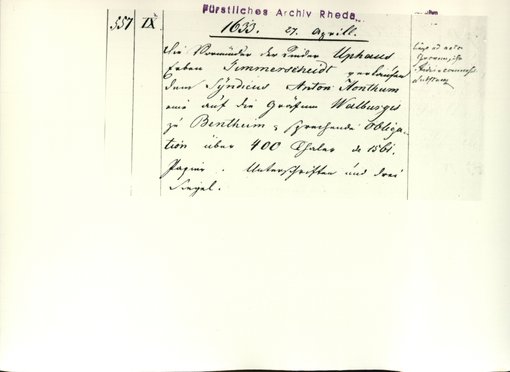 Fürstliches Archiv Rheda
557 IX
1633. 27. Aprill.
Die Vormünder der Kinder Uphaus
Erben Timmerscheidt verkaufen
dem Syndicus Anton Honthum
eine auf die Gräfinn Walburges
zu Bentheim sprechende Obliga-
tion über 400 Thaler de 1561.
Papier. Unterschriften und drei
Siegel.